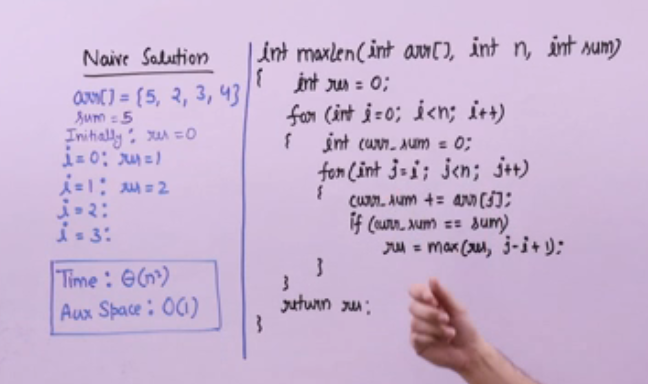 Naive Solution
arr[] = {5, 2, 3, 4}
sum = 5
Initially: res = 0
i=0: res=1
i=1: res=2
i=2:
i=3:
Time: Θ(n²)
Aux Space: O(1)
int maxlen(int arr[], int n, int sum)
{ int res = 0;
for (int i=0; i<n; i++)
{ int curr_sum = 0;
for(int j=i; j<n; j++)
{ curr_sum += arr[j];
if (curr_sum == sum)
res = max(res, j-i+1);
}
}
return res;
}